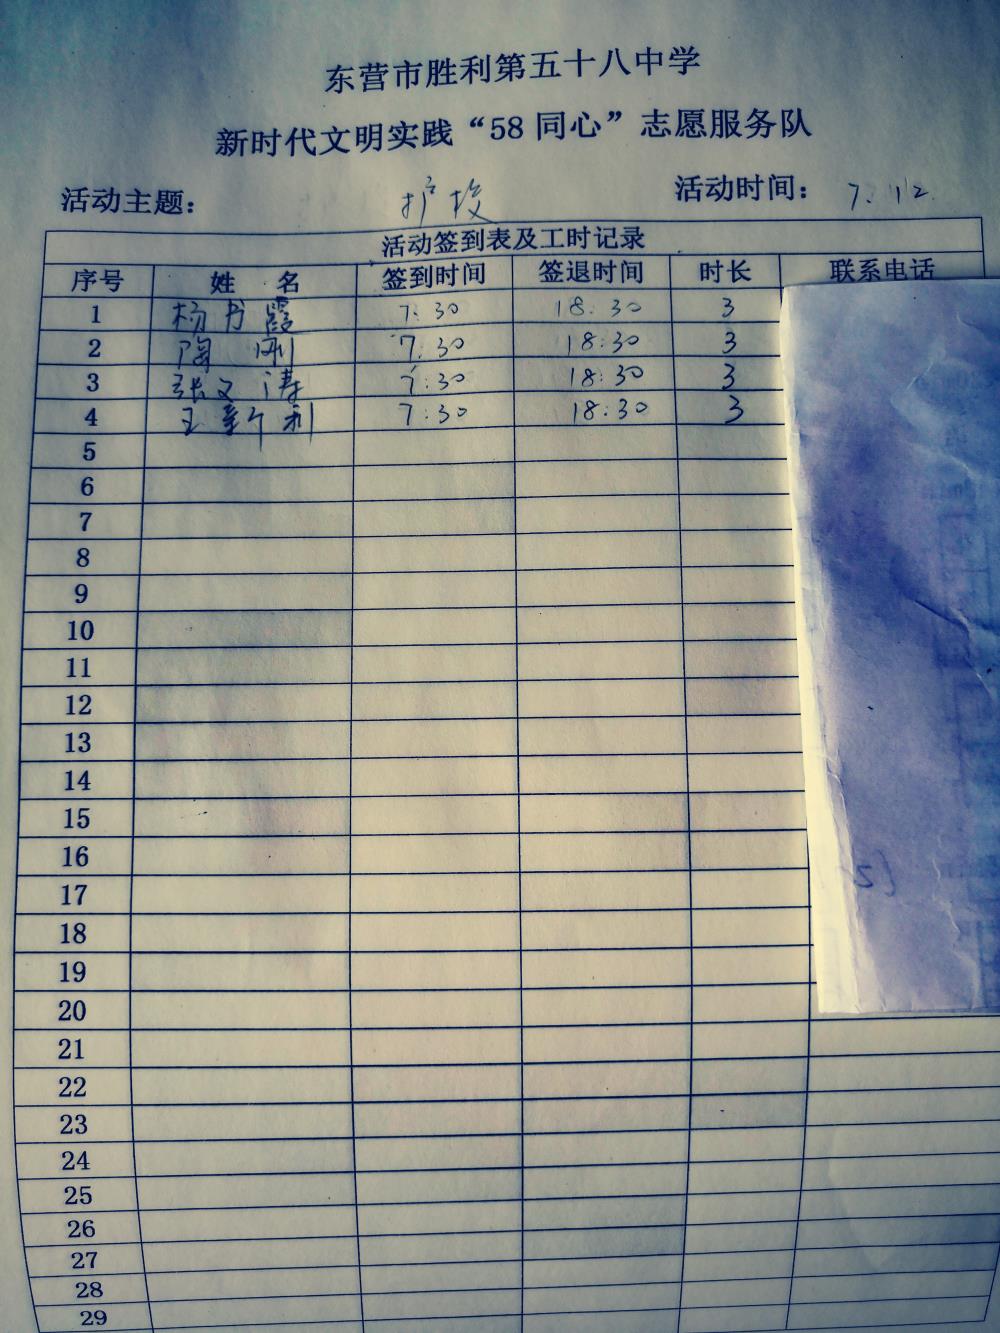 东营市胜利第五十八中学
新时代文明实践“58同心”志愿服务队
活动主题： 护校 活动时间： 7.12
活动签到表及工时记录
序号 姓 名 签到时间 签退时间 时长 联系电话
1 杨书霞 7:30 18:30 3
2 陶刚 7:30 18:30 3
3 张文涛 7:30 18:30 3
4 王新利 7:30 18:30 3
5
6
7
8
9
10
11
12
13
14
15
16
17
18
19
20
21
22
23
24
25
26
27
28
29